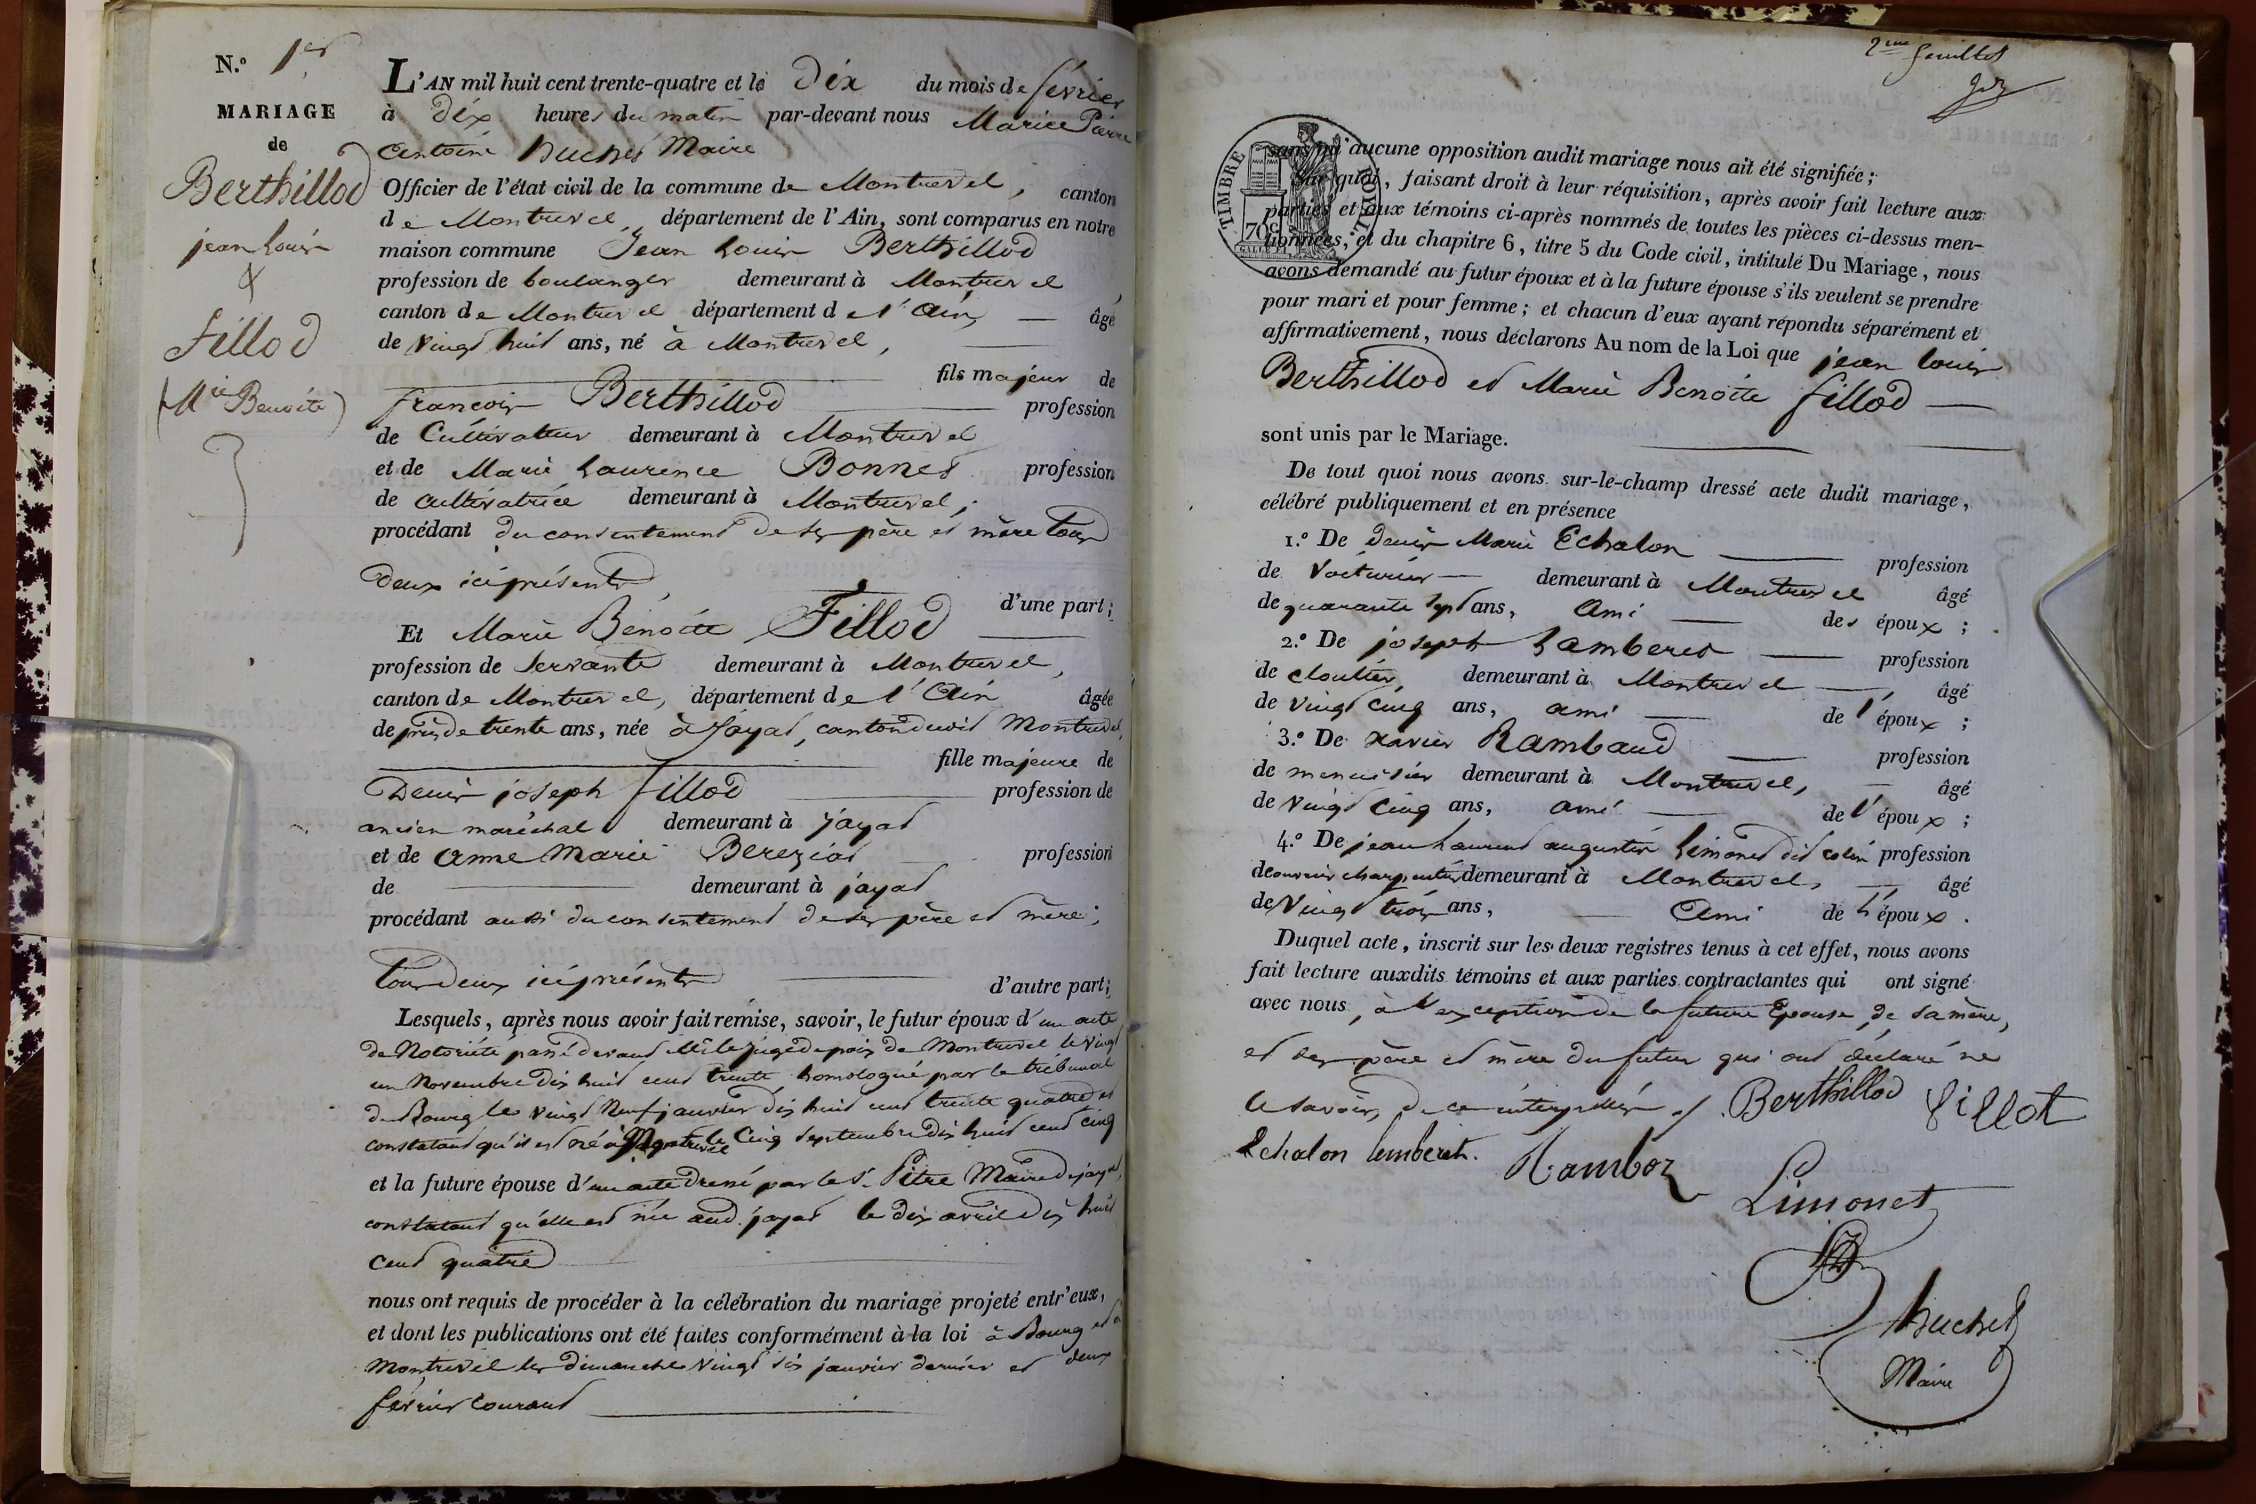 N.° 1er
MARIAGE
de
Berthillod
jean Louis
&
fillod
(Mie Benoite)
L'AN mil huit cent trente-quatre et le dix du mois de février
à dix heures du matin par-devant nous Marie Pierre
Antoine huchet Maire
Officier de l'état civil de la commune de Montrevel, canton
de Montrevel département de l'Ain, sont comparus en notre
maison commune Jean Louis Berthillod
profession de boulanger demeurant à Montrevel,
canton de Montrevel département de l'Ain, âgé
de vingt huit ans, né à Montrevel,
fils majeur de
françois Berthillod profession
de Cultivateur demeurant à Montrevel
et de Marie Laurence Bonnet profession
de cultivatrice demeurant à Montrevel,
procédant du consentement de ses père et mère tous
deux ici présents,
d'une part;
Et Marie Benoite Fillod
profession de servante demeurant à Montrevel,
canton de Montrevel, département de l'Ain âgée
de près de trente ans, née à Jayat, canton dudit Montrevel,
fille majeure de
Denis joseph fillod profession de
ancien maréchal demeurant à jayat
et de anne Marie Bereziat profession
de demeurant à jayat
procédant aussi du consentement de ses père et mère;
tous deux ici présents d'autre part;
Lesquels, après nous avoir fait remise, savoir, le futur époux d'un acte
de Notoriété passé devant Mr le juge de paix de Montrevel le vingt
un Novembre dix huit cent trente homologué par le tribunal
de Bourg le vingt Neuf janvier dix huit cent trente quatre et
constatant qu'il est né à Montrevel le Cinq septembre dix huit cent cinq
et la future épouse d'un acte dressé par le Sr. Pitre Maire de jayat,
constatant qu'elle est née aud. jayat le dix avril dix huit
cent quatre
nous ont requis de procéder à la célébration du mariage projeté entr'eux,
et dont les publications ont été faites conformément à la loi à Bourg et à
Montrevel les dimanches vingt six janvier dernier et deux
février courant
2eme feuillet
TIMBRE ROYAL
70c
sans qu'aucune opposition audit mariage nous ait été signifiée;
Sur quoi, faisant droit à leur réquisition, après avoir fait lecture aux
parties et aux témoins ci-après nommés de toutes les pièces ci-dessus men-
tionnées, et du chapitre 6, titre 5 du Code civil, intitulé Du Mariage, nous
avons demandé au futur époux et à la future épouse s'ils veulent se prendre
pour mari et pour femme; et chacun d'eux ayant répondu séparément et
affirmativement, nous déclarons Au nom de la Loi que jean louis
Berthillod et Marie Benoite fillod
sont unis par le Mariage.
De tout quoi nous avons sur-le-champ dressé acte dudit mariage,
célébré publiquement et en présence
1.° De Denis Marie Echalon profession
de Voiturier demeurant à Montrevel âgé
de quarante sept ans, ami des époux;
2.° De joseph Lamberet profession
de cloutier demeurant à Montrevel, âgé
de vingt cinq ans, ami de l'époux;
3.° De xavier Rambaud profession
de menuisier demeurant à Montrevel, âgé
de vingt cinq ans, ami de l'époux;
4.° De jean Laurent augustin Limonet dit colin profession
de ouvrier charpentier demeurant à Montrevel, âgé
de vingt trois ans, Ami de L'époux.
Duquel acte, inscrit sur les deux registres tenus à cet effet, nous avons
fait lecture auxdits témoins et aux parties contractantes qui ont signé
avec nous, à l'exception de la future Epouse, de sa mère,
et des père et mère du futur qui ont déclaré ne
le savoir, de ce interpellés. Berthillod fillot
Echalon lemberet. Ramboz
Limonet
huchet
Maire